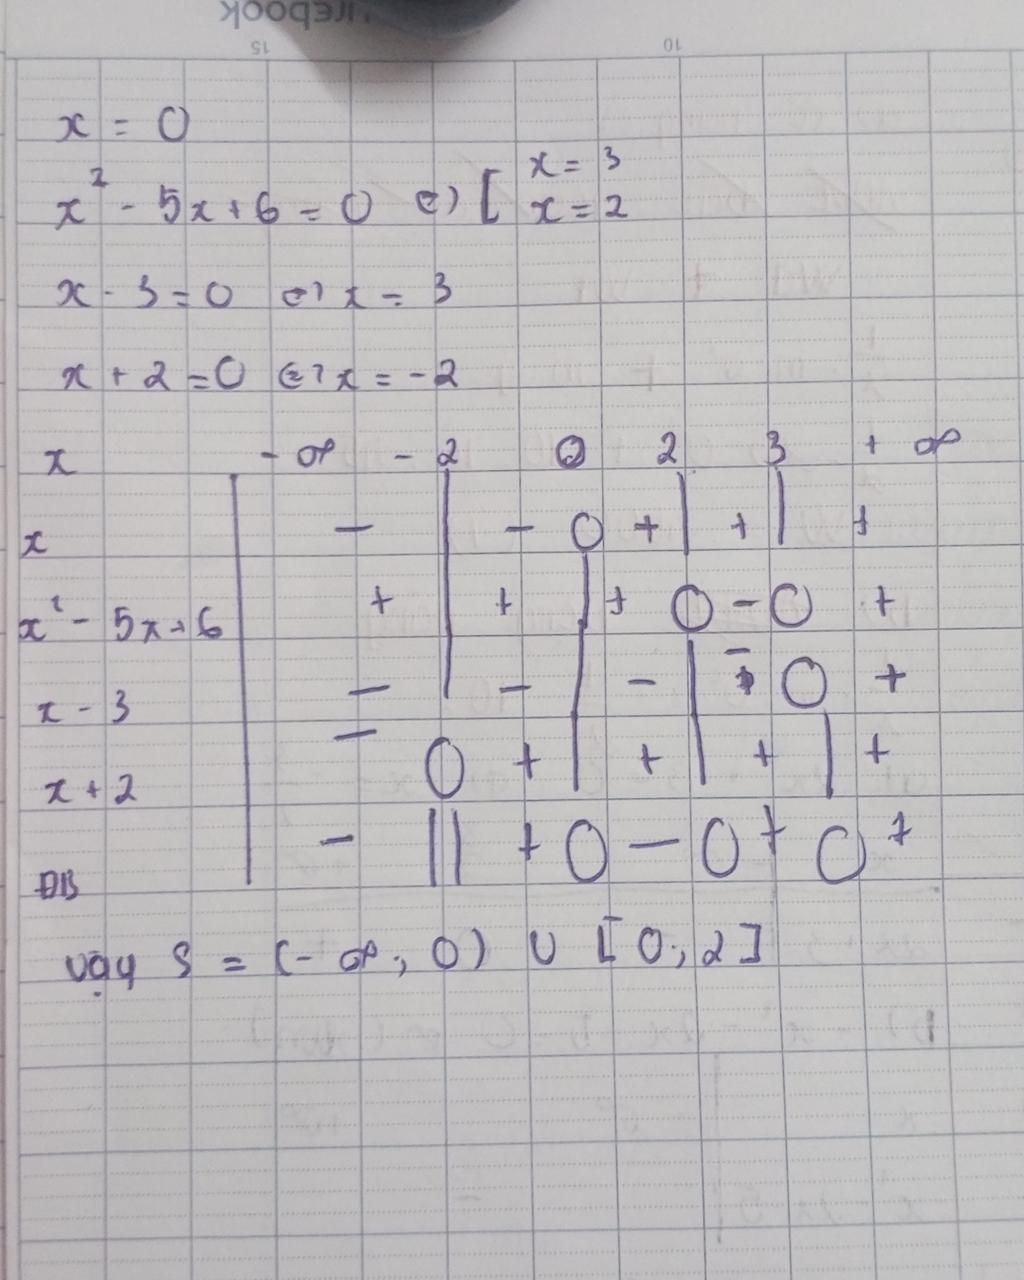 15 10
x = 0
x² - 5x + 6 = 0 ⇔ [ x = 3
x = 2
x - 3 = 0 ⇔ x = 3
x + 2 = 0 ⇔ x = -2
x - ∞ - 2 0 2 3 + ∞
x - | - 0 + | + | +
x² - 5x + 6 + | + | + 0 - 0 +
x - 3 - | - | - | - 0 +
x + 2 - 0 + | + | + | +
ĐB - || + 0 - 0 + 0 +
vậy S = (- ∞; 0) ∪ [0; 2]